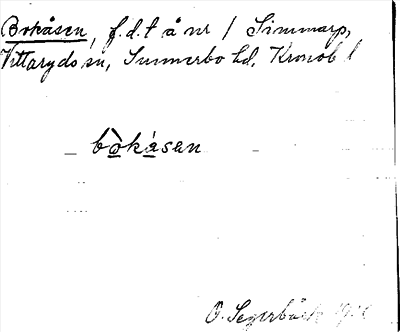 Bokåsen, f.d.t å nr 1 Simmarp,
Vittaryds sn, Sunnerbo hd, Kronob l
bòkåsen
O. Segerbäck